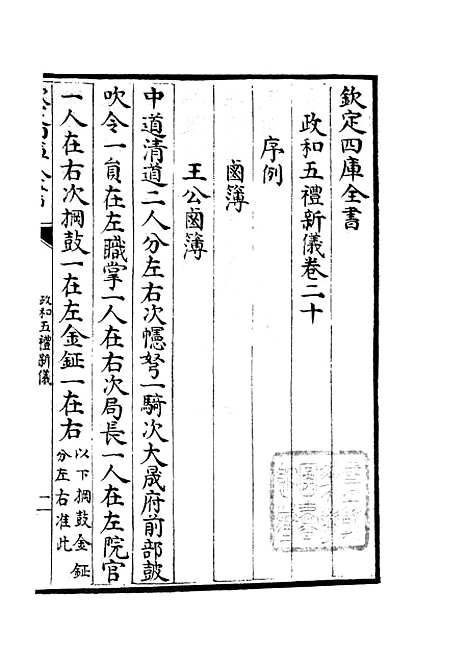 欽定四庫全書
政和五禮新儀卷二十
序例
鹵簿
王公鹵簿
中道清道二人分左右次幰弩一騎次大晟府前部鼓
吹令一員在左職掌一人在右次局長一人在左院官
一人在右次掆鼓一在左金鉦一在右以下掆鼓金鉦分左右准此
政和五禮新儀